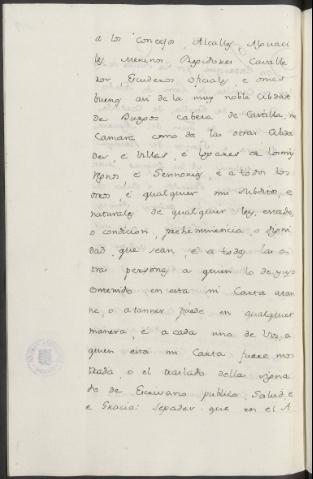 a los Concejos Alcalles, Alguaci
les Merinos Regidores Cavalle
ros, Escuderos oficiales e omes
buenos asi de la muy noble Cibdat
de Burgos cabeza de Castilla, mi
Camara como de las otras Cibda
des e Villas, e Logares de los mis
Regnos e Sennorios, e a todos los
otros, e qualquier mis subditos e
naturales de qualquier ley, estado,
o condicion, prehéminencia o digni
dad que sean, e a todas las o
tras personas a quien lo de yuso
contenido en esta mi Carta atan
ne, o atanner puede en qualquier
manera, e a cada uno de Vos, a
quien esta mi Carta fuere mos
trada o el traslado della signa
do de Escrivano publico, Salud, e
e Gracia: Sepades que en el A